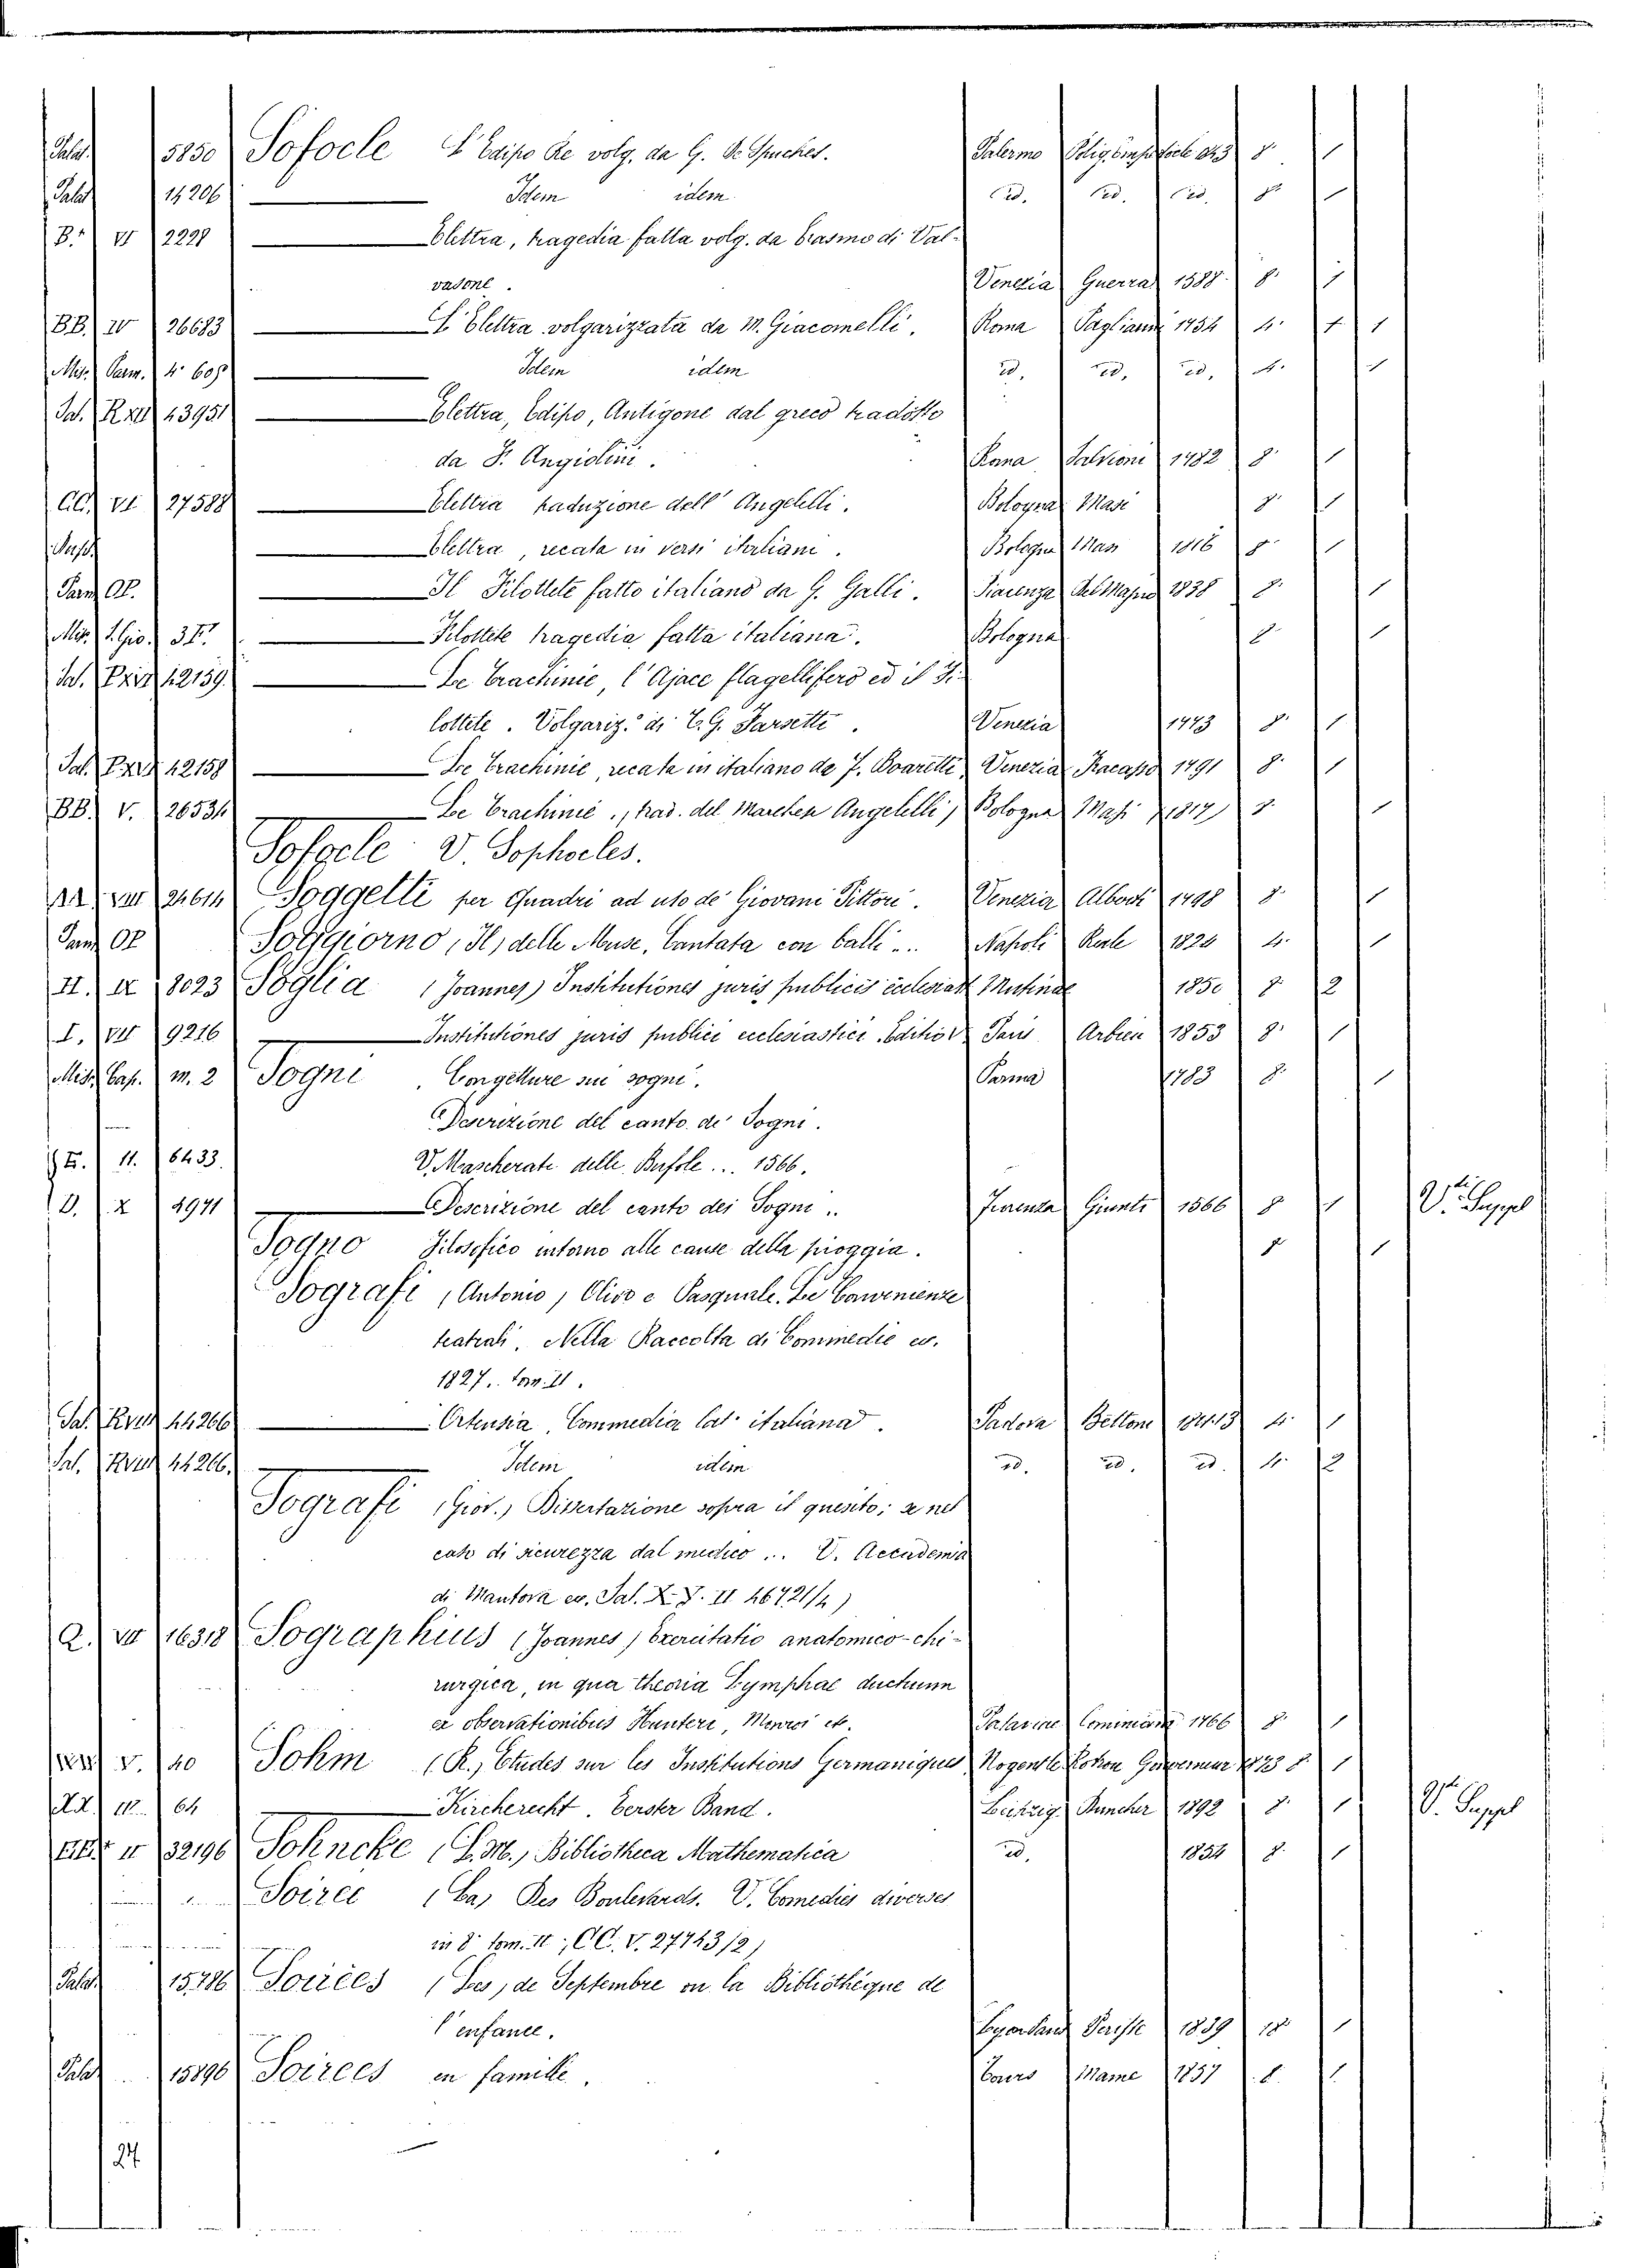 Palat. 5850 Sofocle L'Edipo Re volg. da G. De Spuches. Palermo 1843 8 1
Palat 14206 Idem idem id. id. id. 8 1
B.* VI 2228 Elettra, tragedia fatta volg. da Erasmo di Val-
vasone. Venezia Guerra 1588. 8. 1
BB. IV 26683 L'Elettra volgarizzata da M. Giacomelli. Roma Pagliarini 1754 4. 1 1
Mis. Parm. 4° 608 Idem idem id. id. id. 4. 1
Sal. R XII 43951 Elettra, Edipo, Antigone dal greco tradotte
da F. Angiolini. Roma Salvioni 1782 8. 1
CC. VI 27588 Elettra traduzione dell' Angelelli. Bologna Masi 8. 1
Elettra, recata in versi italiani. Bologna Masi 1816 8 1
Parm. Op. Il Filottete fatto italiano da G. Galli. Piacenza Del Majno 1838 8. 1
Mis. S. Gio. 38. Filottete tragedia fatta italiana. Bologna 8. 1
Sal. 42159. Le Trachinie, l'Ajace flagellifero ed il Fi-
lottete. Volgariz. di T. G. Farsetti. Venezia 1773 8. 1
Sal. 42158 Le Trachinie, recate in italiano da F. Boaretti Venezia Fracasso 1791 8. 1
BB. V. 26534 Le Trachinie., trad. del Marchese Angelelli, Bologna Masi 1817 8. 1
Sofocle V. Sophocles.
AA. VIII 24614 Soggetti per Quadri ad uso de' Giovani Pittori. Venezia Albrizzi 1798 8. 1
Parm. Op Soggiorno, Il, delle Muse, Cantata con balli... Napoli Reale 1824 4. 1
II. IX 8023 Soglia (Joannes) Institutiones juris publicis ecclesiast Mutinae 1850 8. 2
I. VII 9216 Institutiones juris publici ecclesiastici. Editio V. Paris Arbieu 1853 8. 1
Mis. Cap. m. 2 Sogni. Congetture sui sogni. Parma 1783 8. 1
Descrizione del canto de' Sogni.
E. 11. 6433. V. Mascherate delle Bufole... 1566.
D. X 4971 Descrizione del canto dei Sogni.. Fiorenza Giunti 1566 8 1 V.di Suppl
Sogno Filosofico intorno alle cause della pioggia. 8 1
Sografi (Antonio) Olivo e Pasquale. Le Convenienze
teatrali. Nella Raccolta di Commedie ec.
1827.. tom. II.
Sal. 44266 Ortensia, Commedia lat. italiana. Padova Bettoni 4. 1
Sal. 44266. Idem idem id. id. id. 4. 2
Sografi (Giov.) Dissertazione sopra il quesito; se nel
caso di sicurezza dal medico... V. Accademia
di Mantova ec. Sal. X. J. II 46721/4)
Q. VII 16318 Sographius (Joannes) Exercitatio anatomico-chi-
rurgica, in qua theoria Lymphae ductuum
ex observationibus Hunteri, Monroi etc. Patavii Cominiana 1766 8. 1
V. 40 Sohm (R.) Etudes sur les Institutions Germaniques Nogent le Rotrou Gouverneur 1873 8. 1
64 Kircherecht. Erster Band. Leipzig Duncher 1892 8. 1 V.di Suppl
II 32196 Sohncke (L. M.) Bibliotheca Mathematica id. 1854 8. 1
Soirée (La) Des Boulevards. V. Comedies diverses
in 8° tom. II; CC. V. 27743/2)
Palat. 15786 Soirées (Les) de Septembre ou la Bibliothèque de
l'enfance. Lyon Perisse 1839 18° 1
Palat 15896 Soirées en famille. Tours Mame 1857 8. 1
24